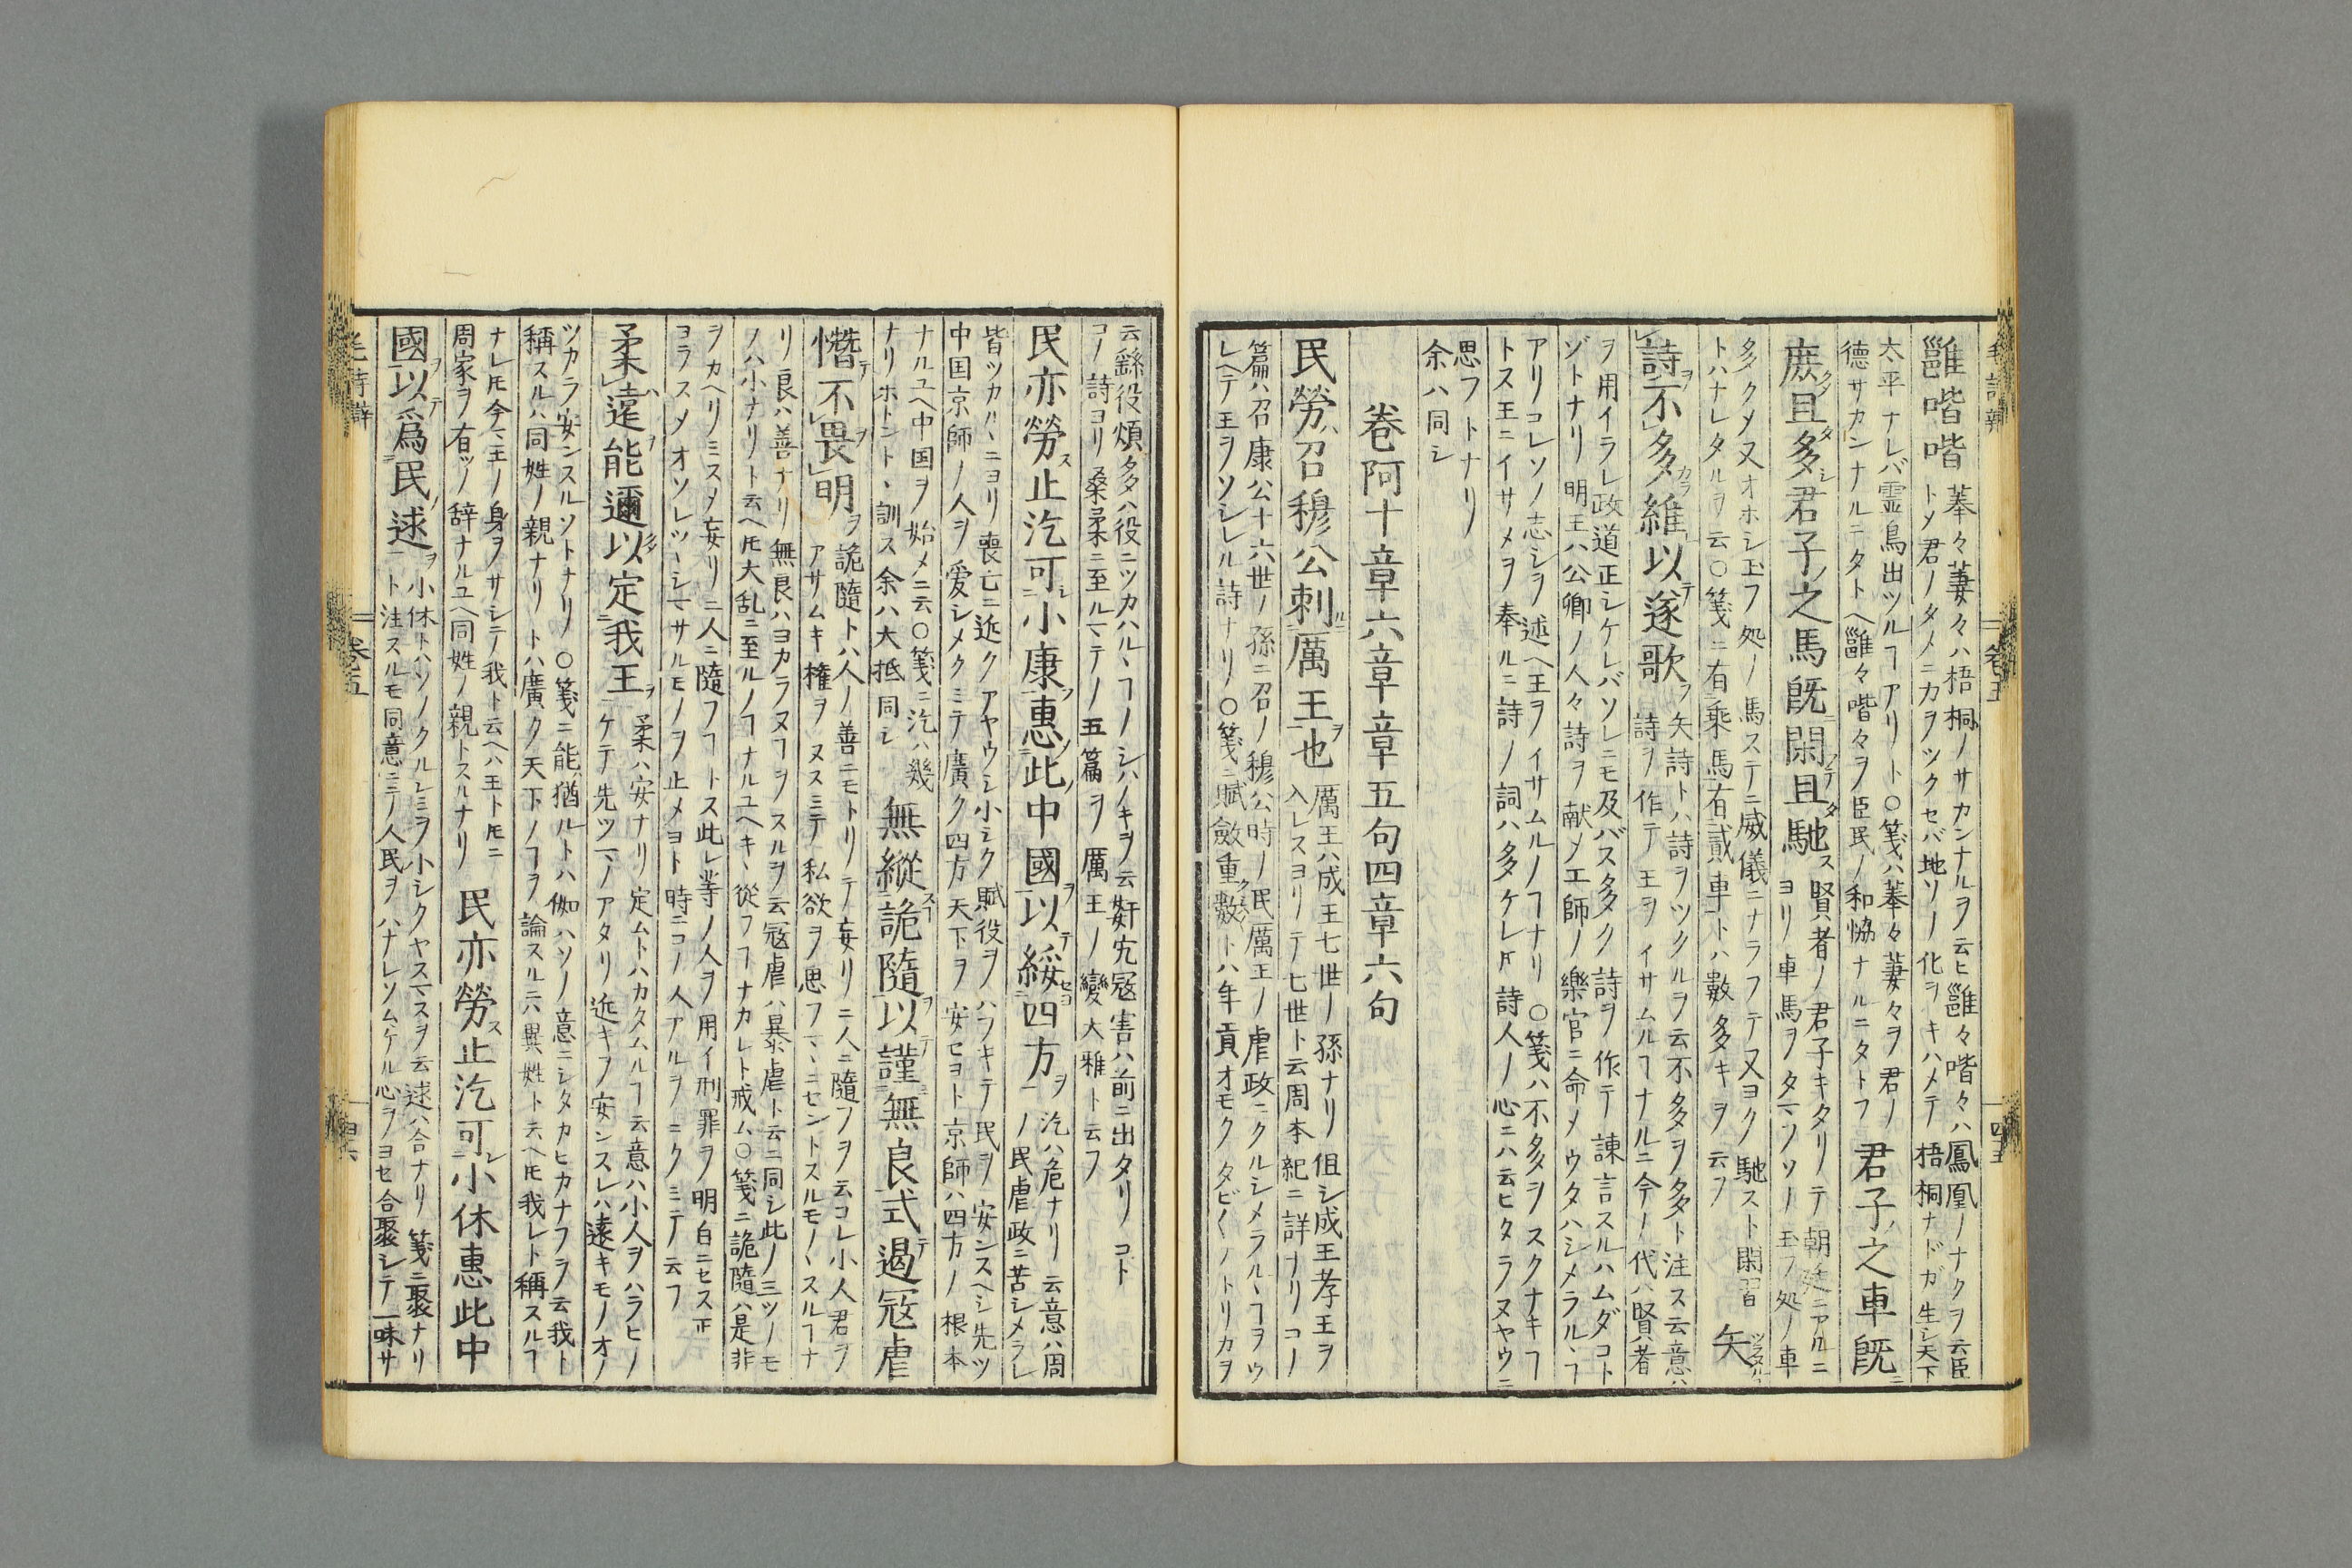 雝喈喈 菶々萋々ハ梧桐ノサカンナルヲ云ヒ雝々喈々ハ鳳凰ノナクヲ云臣
トメ君ノタメニカヲツクセバ地ソノ化ヲキハメテ梧桐ナドガ生シ天下
太平ナレバ霊鳥出ツルヿアリト○箋ハ菶々萋々ヲ君ノ
德サカンナルニタトヘ雝々喈々ヲ臣民ノ和恊ナルニタトフ 君子之車旣
庶且多君子之馬旣閑且馳 賢者ノ君子キタリテ朝廷ニアルニ
ヨリ車馬ヲタマソノ玉フ処ノ車
多クメ又オホシ玉フ処ノ馬ステニ威儀ニナラフテ又ヨク馳スト閑習
トハナレタルヲ云○箋ニ有乘馬有貳車トハ數多キヲ云フ 矢
詩不多維以遂歌 矢詩トハ詩ヲツクルヲ云不多ヲ多ト注ス云意ハ
詩ヲ作テ王ヲイサムルヿナルニ今ノ代ハ賢者
ヲ用イラレ政道正シケレバソレニモ及バス多ク詩ヲ作テ諫言スルハムダコト
ゾトナリ明王ハ公卿ノ人々詩ヲ献メエ師ノ樂官ニ命メウタハシメラルヽヿ
アリコレソノ志シヲ述ヘ王ヲイサムルノヿナリ○箋ハ不多ヲスクナキヿ
トス王ニイサメヲ奉ルニ詩ノ詞ハ多ケレ𪜈詩人ノ心ニハ云ヒタラヌヤウニ
思フトナリ
余ハ同シ
卷阿十章六章章五句四章六句
民勞召穆公刺厲王也 厲王ハ成王七世ノ孫ナリ但シ成王孝王ヲ
入レスヨリテ七世ト云周本紀ニ詳ナリコノ
篇ハ召康公十六世ノ孫ニ召ノ穆公時ノ民厲王ノ虐政ニクルシメラルヽヿヲウ
レヘテ王ヲソシレル詩ナリ○箋ニ賦斂重數トハ年貢オモクタビ〱ノトリカヲ
云繇役煩多ハ役ニツカハルヽヿノシハノキヲ云姧宄冦害ハ前ニ出タリコト
コノ詩ヨリ桑柔ニ至ルマテノ五篇ヲ厲王ノ變大雅ト云フ
民亦勞止汔可小康惠此中國以綏四方 汔ハ危ナリ云意ハ周
ノ民虐政ニ苦シメラレ
皆ツカルヽニヨリ喪亡ニ近クアヤウシ小シク賦役ヲハフキテ民ヲ安ンスヘシ先ツ
中国京師ノ人ヲ爱シメクミテ廣ク四方天下ヲ安セヨト京師ハ四方ノ根本
ナルユヘ中国ヲ始メニ云○箋ニ汔ハ幾
ナリホトント訓ス余ハ大抵同シ 無縱詭隨以謹無良式遏冦虐
憯不畏明 詭隨トハ人ノ善ニモトリテ妄リニ人ニ隨フヲ云コレ小人君ヲ
アサムキ権ヲヌスミテ私欲ヲ思フマヽニセントスルモノヽスルヿナ
リ良ハ善ナリ無良ハヨカラヌヿヲスルヲ云冦虐ハ暴虐ト云ニ同シ此ノ三ツノモ
ノハ小ナリト云ヘ𪜈大乱ニ至ルノヿナルユヘキヽ從フヿナカレト戒ム○箋ニ詭隨ハ是非
ヲカヘリミスメ妄リニ人ニ隨フヿトス此レ等ノ人ヲ用イ刑罪ヲ明白ニセス正
コラスメオソレツヽシマサルモノヲ止メヨト時ニコノ人アルヲニクミテ云フ
柔遠能邇以定我王 柔ハ安ナリ定ムトハカタムルヿ云意ハ小人ヲハラヒノ
ケテ先ツマノアタリ近キヲ安ンスレハ遠キモノオノ
ツカラ安ンスルソトナリ○箋ニ能猶ルトハ伽ハソノ意ニシタカヒカナフヲ云我ト
稱スルハ同姓ノ親ナリトハ廣ク天下ノヿヲ論スルニハ異姓ト云ヘ𪜈我レト稱スルヿ
ナレ𪜈今マ王ノ身ヲサシテ我ト云ヘハ王ト𪜈ニ
周家ヲ有ツノ辞ナルユヘ同姓ノ親トスルナリ 民亦勞止汔可小休惠此中
國以爲民逑 小休トハソノクルシミヲ小シクヤスマスヲ云逑ハ合ナリ箋ニ聚ナリ
ト注スルモ同意ニテ人民ヲハナレソムケル心ヲヨセ合聚シテ一味サ